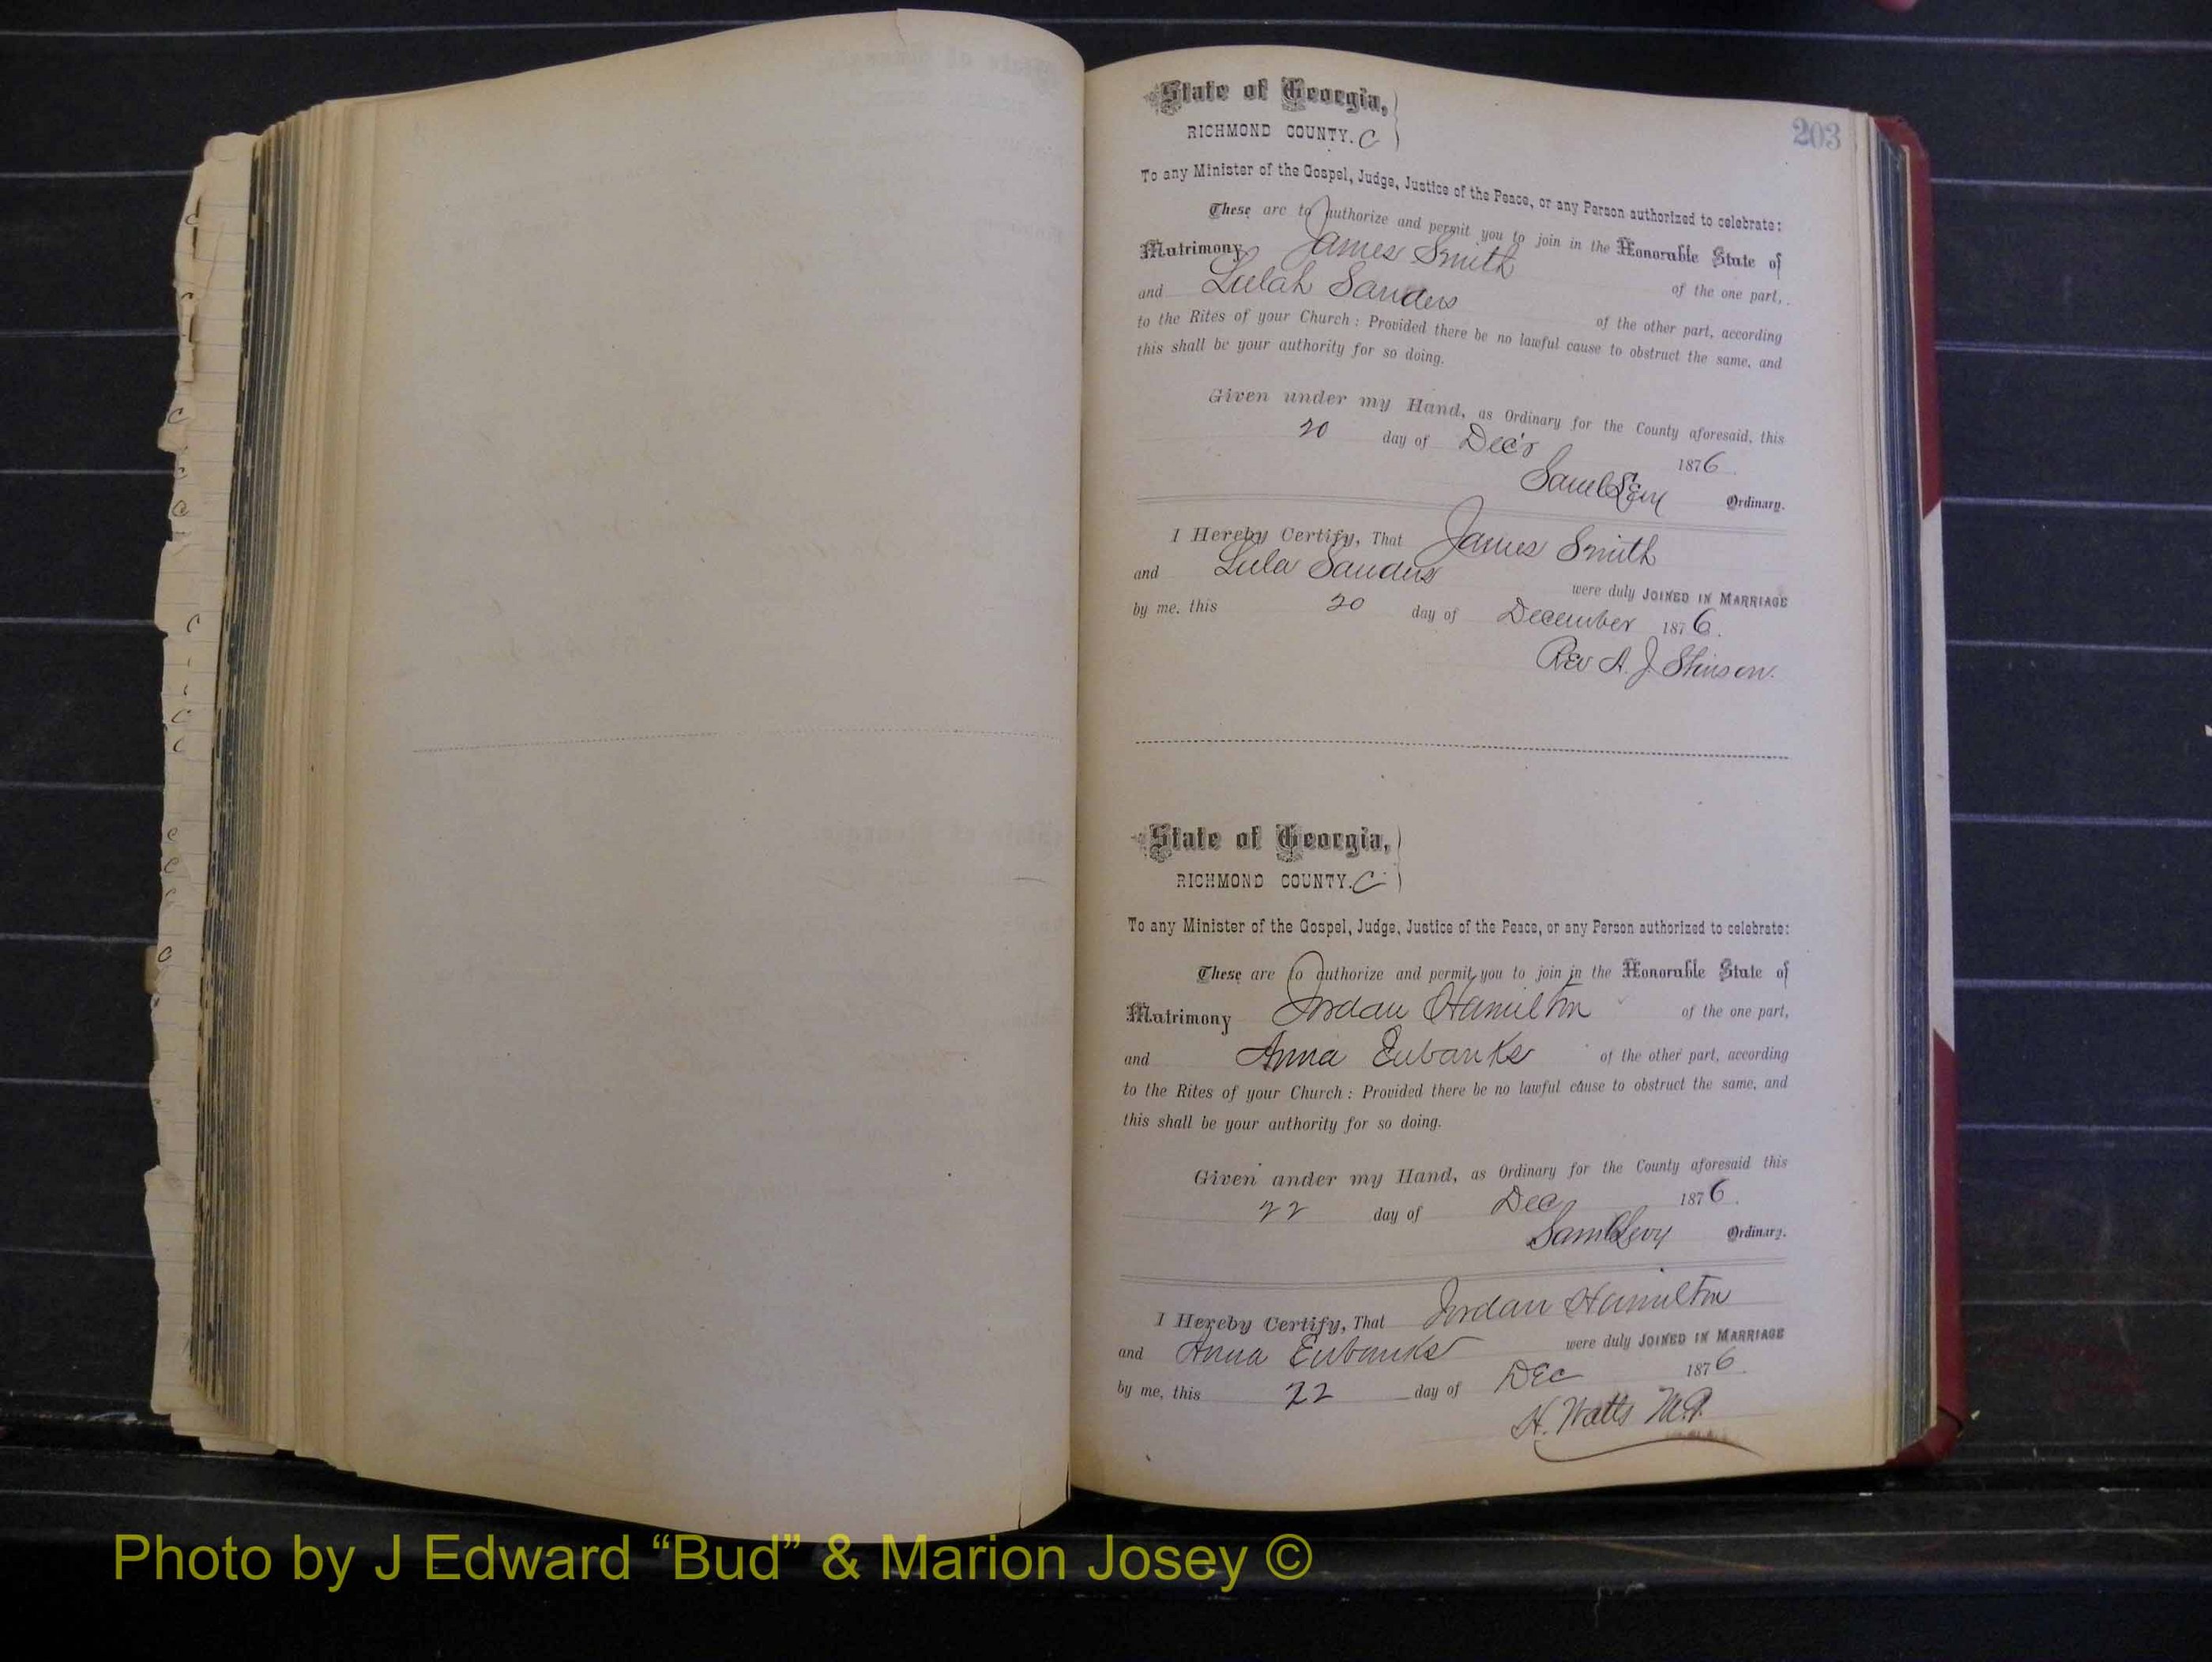 203
State of Georgia,
RICHMOND COUNTY. C
To any Minister of the Gospel, Judge, Justice of the Peace, or any Person authorized to celebrate:
These are to authorize and permit you to join in the Honorable State of
Matrimony James Smith of the one part,
and Lulah Sanders of the other part, according
to the Rites of your Church: Provided there be no lawful cause to obstruct the same, and
this shall be your authority for so doing.
Given under my Hand, as Ordinary for the County aforesaid, this
20 day of Dec'r 1876.
Saml Levy Ordinary.
I Hereby Certify, That James Smith
and Lula Sanders were duly JOINED IN MARRIAGE
by me, this 20 day of December 1876.
Rev A. J. Stinson.
State of Georgia,
RICHMOND COUNTY. C
To any Minister of the Gospel, Judge, Justice of the Peace, or any Person authorized to celebrate:
These are to authorize and permit you to join in the Honorable State of
Matrimony Jordan Hamilton of the one part,
and Anna Eubanks of the other part, according
to the Rites of your Church: Provided there be no lawful cause to obstruct the same, and
this shall be your authority for so doing.
Given under my Hand, as Ordinary for the County aforesaid this
22 day of Dec 1876.
Saml Levy Ordinary.
I Hereby Certify, That Jordan Hamilton
and Anna Eubanks were duly JOINED IN MARRIAGE
by me, this 22 day of Dec 1876.
H. Watts M.G.
Photo by J Edward “Bud” & Marion Josey ©